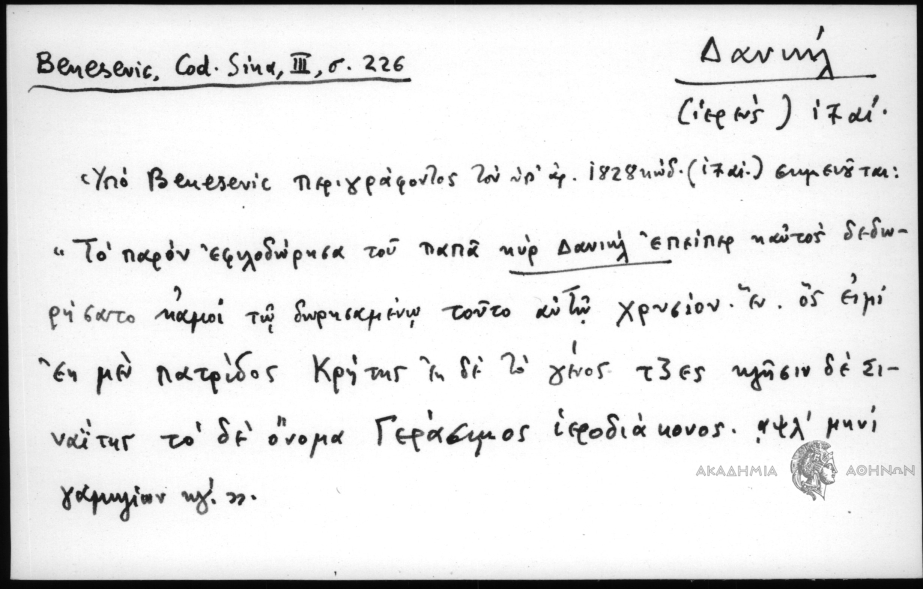 Benesevic, Cod. Sina, III, σ. 226
Δανιήλ
(ἱερεὺς) ιζ αἰ.
Ὑπό Benesevic περιγράφοντος τον ὑπ' ἀρ. 1828 κώδ. (ιζ αἰ.) σημειοῦται:
"Τὸ παρὸν ἐφιλοδώρησα τοῦ παπᾶ κὺρ Δανιήλ ἐπείπερ καὐτὸς δεδω-
ρήσατο κἀμοί τῷ δωρησαμένῳ τοῦτο αὐτῷ χρυσίον. ἕν. ὅς εἰμί
ἐκ μὲν πατρίδος Κρήτης ἐκ δὲ τὸ γένος τζες κλῆσιν δὲ Σι-
ναΐτης τὸ δὲ ὄνομα Γεράσιμος ἱεροδιάκονος. αψλ' μηνί
γαμηλίων κγ'. ».
ΑΚΑΔΗΜΙΑ ΑΘΗΝΩΝ